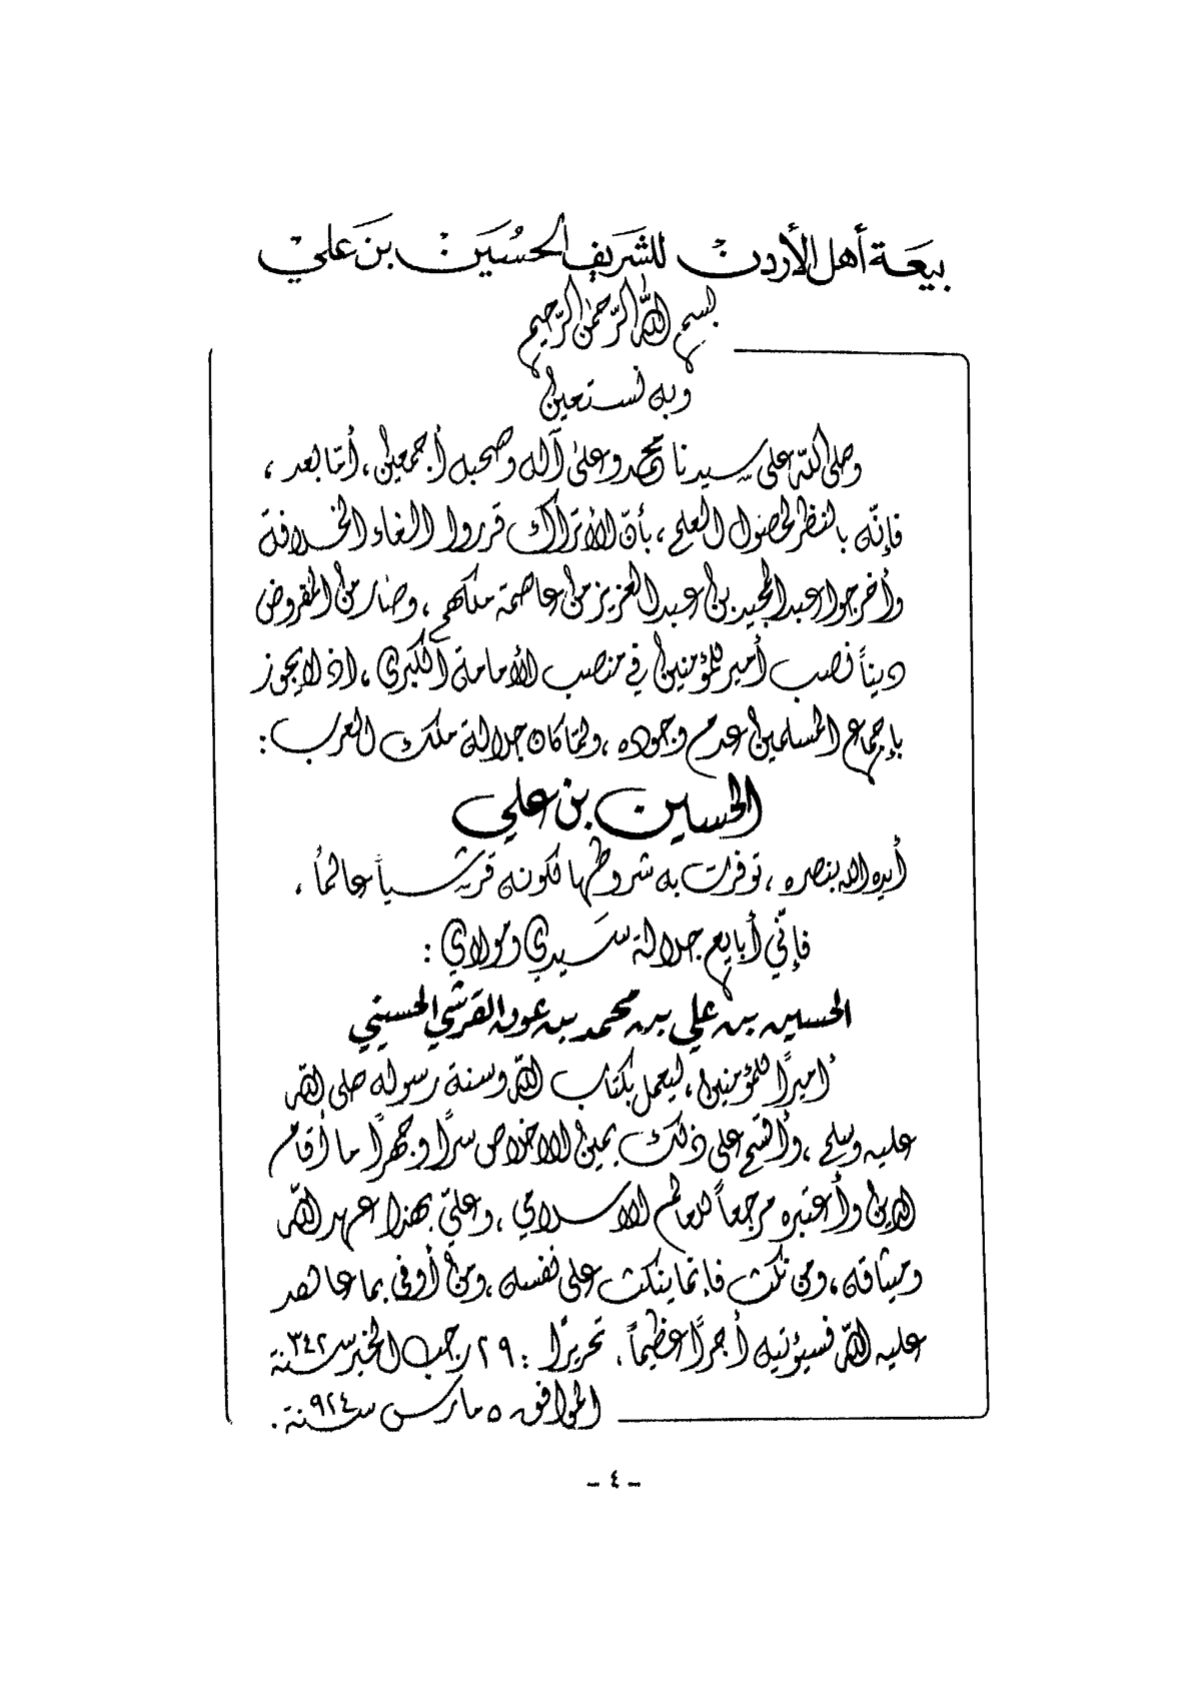 بيعة أهل الأردن للشريف الحسين بن علي
بسم الله الرحمن الرحيم
وبه نستعين
وصلى الله على سيدنا محمد وعلى آله وصحبه أجمعين، أمّا بعد ،
فإنّه بالنظر لحصول العلم ، بأن الأتراك قرروا الغاء الخلافة
وأخرجوا عبد المجيد بن عبد العزيز من عاصمة ملكهم ، وصار من المفروض
ديناً نصب أمير للمؤمنين في منصب الأمامة الكبرى ، اذ لا يجوز
بإجماع المسلمين عدم وجوده ، ولمّا كان جلالة ملك العرب :
الحسين بن علي
أيده الله بنصره ، توفرت به شروطها لكونه قرشياً عالماً ،
فإنّي أبايع جلالة سيدي ومولاي :
الحسين بن علي بن محمد بن عون القرشي الحسني
أميرًا للمؤمنين ، ليعمل بكتاب الله وسنة رسوله صلى الله
عليه وسلم ، وأقسم على ذلك يمين الاخلاص سرًا وجهرًا ما أقام
الدين وأعتبره مرجعاً للعالم الاسلامي ، وعليّ بهذا عهد الله
وميثاقه ، ومن نكث فإنما ينكث على نفسه ، ومن أوفى بما عاهد
عليه اللهّ فسيؤتيه أجرًا عظيماً . تحريرًا : ٢٩ رجب الخير سنة ٣٤٢
الموافق ٥ مارس سنة ٩٢٤ .
- ٤ -